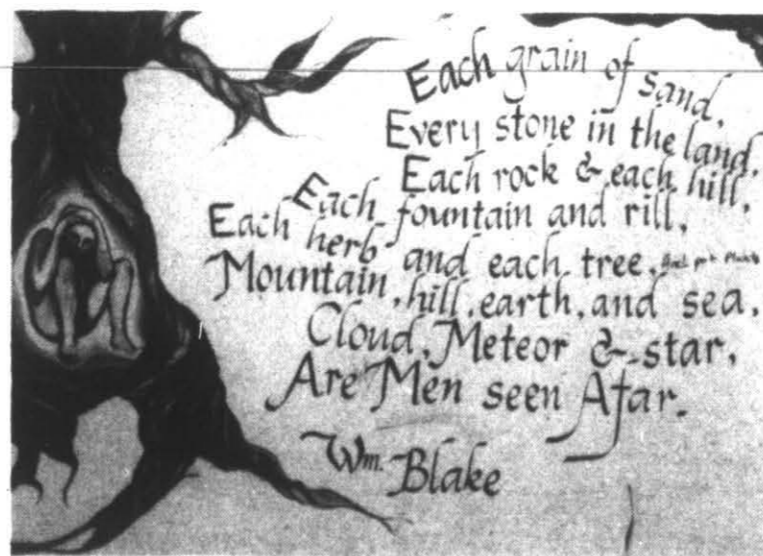 Each grain of sand,
Every stone in the land,
Each rock & each hill,
Each fountain and rill,
Each herb and each tree,
Mountain, hill, earth, and sea,
Cloud, Meteor & star,
Are Men seen Afar.
Wm. Blake